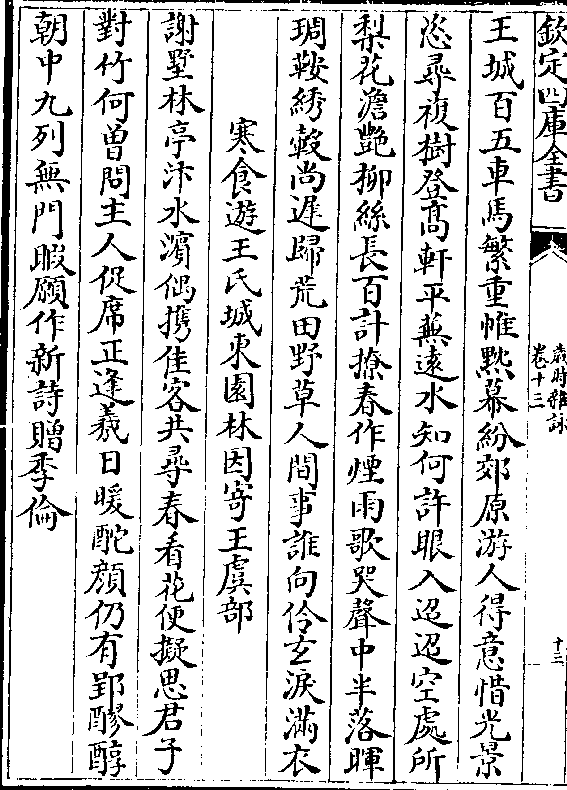 欽定四庫全書
歲時雜詠
卷十三
十三
王城百五車馬繁重帷黕幕紛郊原游人得意惜光景
恣尋複樹登髙軒平蕪逺水知何許眼入迢迢空處所
梨花澹艶柳絲長百計撩春作煙雨歌哭聲中半落暉
琱鞍綉轂尚遲歸荒田野草人間事誰向伶𤣥淚滿衣
寒食遊王氏城東園林因寄王虞部
謝墅林亭汴水濵偶携佳客共尋春看花便擬思君子
對竹何曽問主人促席正逢羲日暖酡顔仍有郢醪醇
朝中九列無門暇願作新詩贈季倫